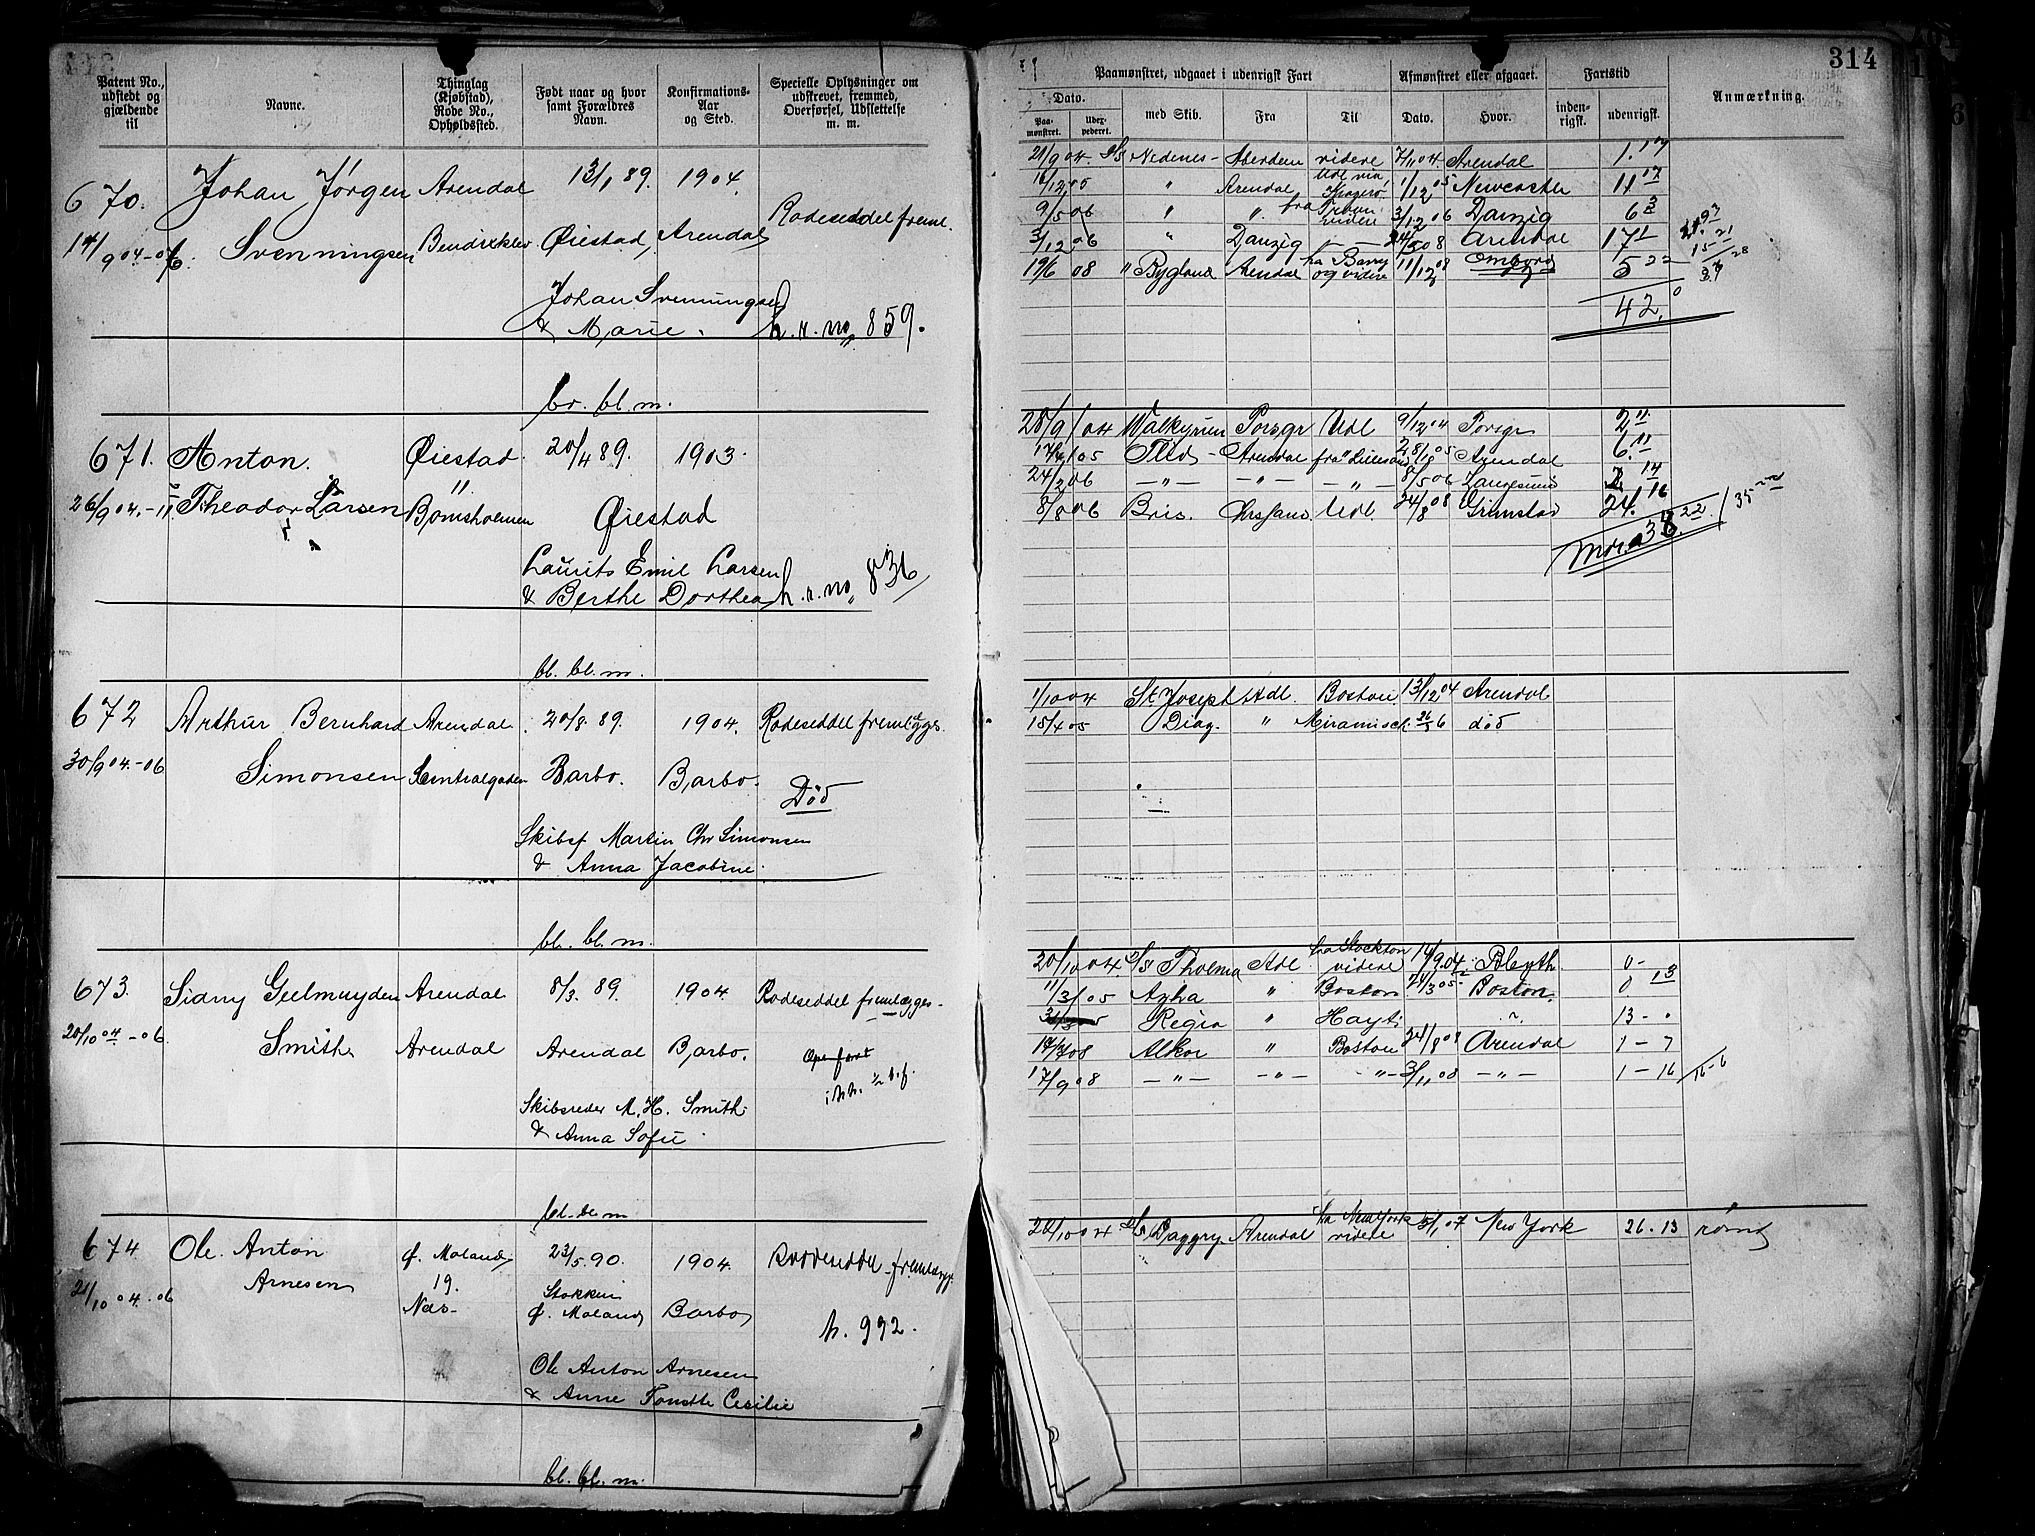 314
Patent No., udstedt og gjældende til
Navne.
Thinglag (Kjøbstad), Rode No., Opholdssted.
Født naar og hvor samt Forældres Navn.
Konfirmations-Aar og Sted.
Specielle Oplysninger om udskrevet, fremmed, Overførsel, Udslettelse m. m.
Paamønstret, udgaaet i udenrigsk Fart
Afmønstret eller afgaaet.
Fartstid
Anmærkning.
Dato.
med Skib.
Fra
Til
Dato.
Hvor.
inden-rigsk.
udenrigsk.
Paa-mønstret.
Udex-pederet.
670. Johan Jörgen Arendal 13/1 89. 1904.
14/9 04-06. Svenningsen Bendiksklev Øiestad, Arendal Rodeseddel freml.
Johan Svenningsen
& Marie. h. r. no 859.
br. bl. m.
21/9 04. S/S Nedenes - Aberdeen videre 7/11 04. Arendal 1. 17
" Arendal 1/12 05 Newcastle 11 17
9/5 06 " " fra 3/12 06 Danzig 6 3
3/12 06 " Danzig 24/5 08 Arendal 17 1
19/6 08 " Bygland Arendal fra Barry og videre 11/12 08 5 22
42. 0
671. Anton Øiestad 20/4 89. 1903.
26/9 04.-11. Theodor Larsen Bomsholmen Øiestad
Laurits Emil Larsen
& Berthe Dorthea h. r. no 836
bl. bl. m.
28/9 04 Walkyrien Porsgr Udl 9/12 04 Porsgr 2 11
05 Arendal fra Lillesand 05 Arendal 6. 11
24/2 06 — " — — " — — " — 8/5 06 Langesund 2 14
8/8 06 Bris. Chrssand Udl. 24/8 08 Grimstad 24. 16
672 Arthur Bernhard Arendal 20/8. 89. 1904. Rodeseddel fremlægges
30/9 04.-06 Simonsen Sentralgaden Barbo. Barbo. Död
Skibsf Martin Chr Simonsen
& Anna Jacobine.
bl. bl. m.
1/10 04 St Joseph Adl. Boston 13/12 04 Arendal
15/4 05 Diaz. " Miramischi 6 död
673. Sidny Geelmuyden Arendal 8/3. 89. 1904 Rodeseddel fremlægges-
20/10 04 -06. Smith Arendal Arendal Barbo.
Skibsreder M. H. Smith
& Anna Sofie
bl. bl. m
20/10 04. S/S Thelma Adl fra Stockton videre Blyth 0- 13
11/3 05 " Boston 05 Boston. 0
Regia " Hayti " 13 - 0
08 Alkor " Boston 24/8 08 Arendal 1 - 7
17/9 08 — " — — " — " — 3/11 08 — " — 1 - 16 16-6
674 Ole Anton Ø. Moland 23/5. 90. 1904. Rodeseddel fremlægges
21/10 04.-06 Arnesen 19. Næs- Stokken Ø. Moland Barbo h. 992.
Ole Anton Arnesen
& Anne Tomille Cecilie
bl. bl. m.
04 S/S Daggry Arendal fra New York videre 07 New York 26. 13 rømt